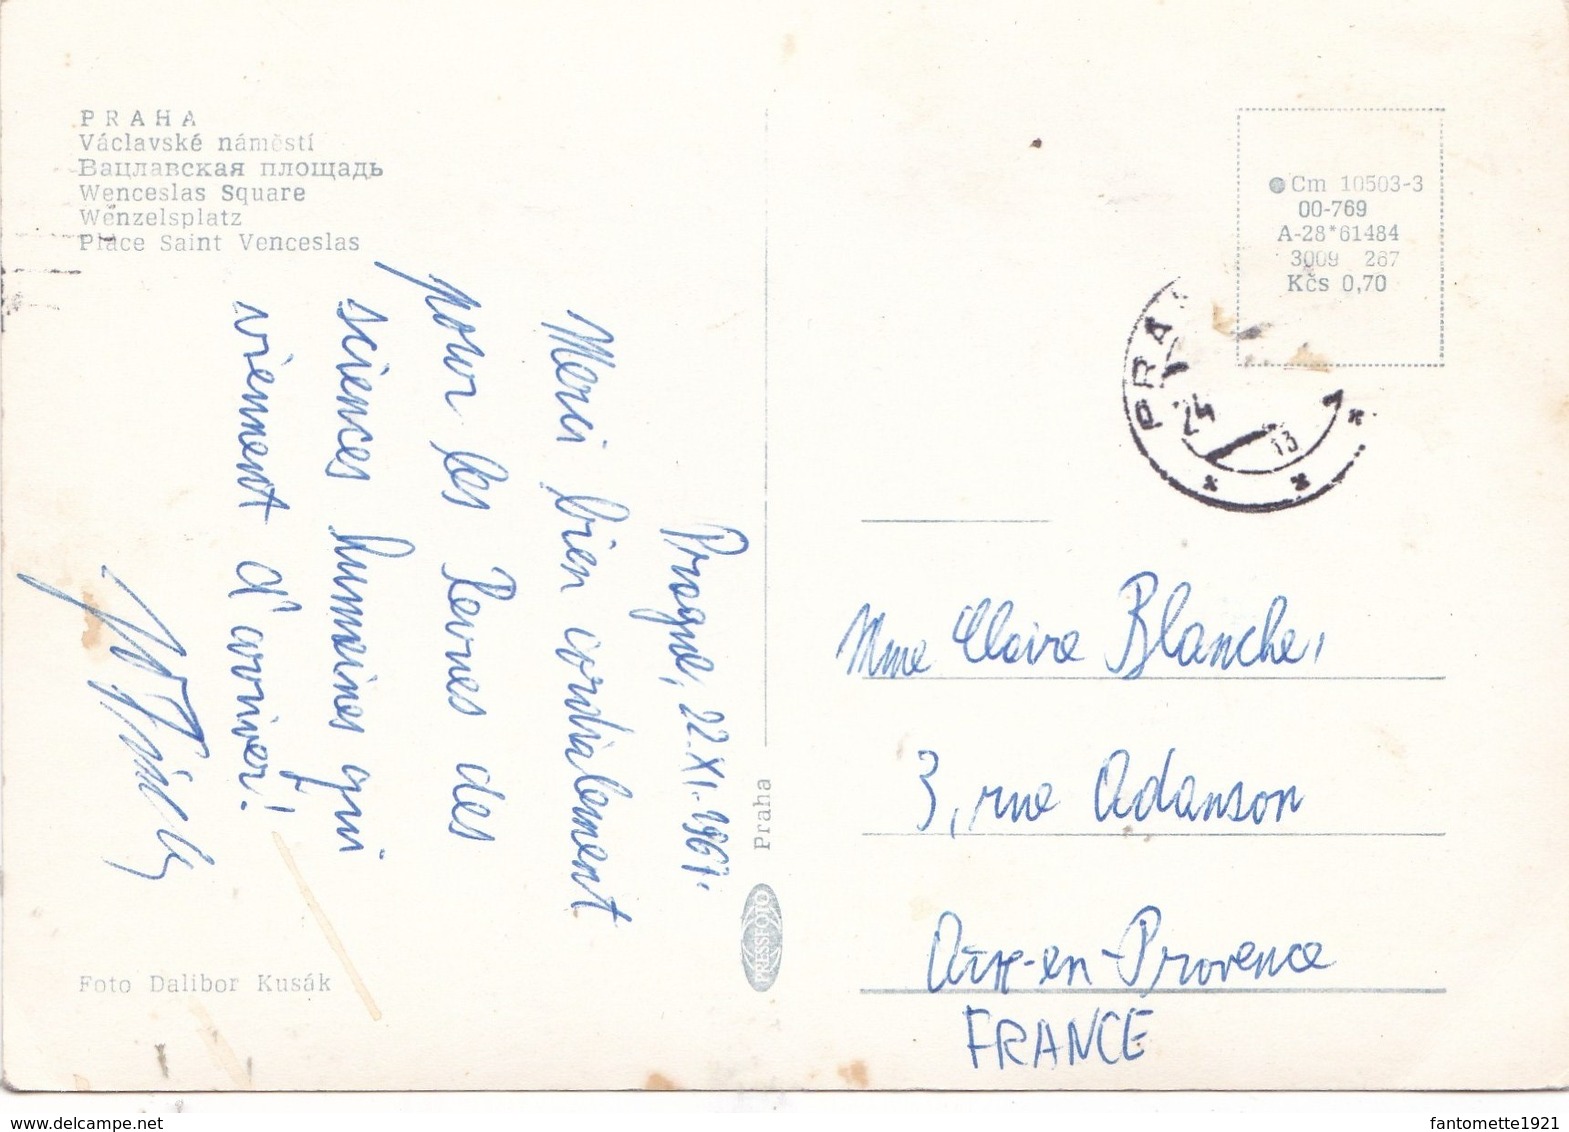 PRAHA
Václavské náměstí
Вацлавская площадь
Wenceslas Square
Wenzelsplatz
Place Saint Venceslas
Prague, 22.XI.1967.
Merci bien cordialement
pour les Revues des
sciences humaines qui
viennent d'arriver!
Foto Dalibor Kusák
Praha
PRESSFOTO
Cm 10503-3
00-769
A-28*61484
3009 267
Kčs 0,70
PRA
24
13
1
Mme Claire Blanche,
3, rue Adanson
Aix-en-Provence
FRANCE
www.delcampe.net
fantomette1921